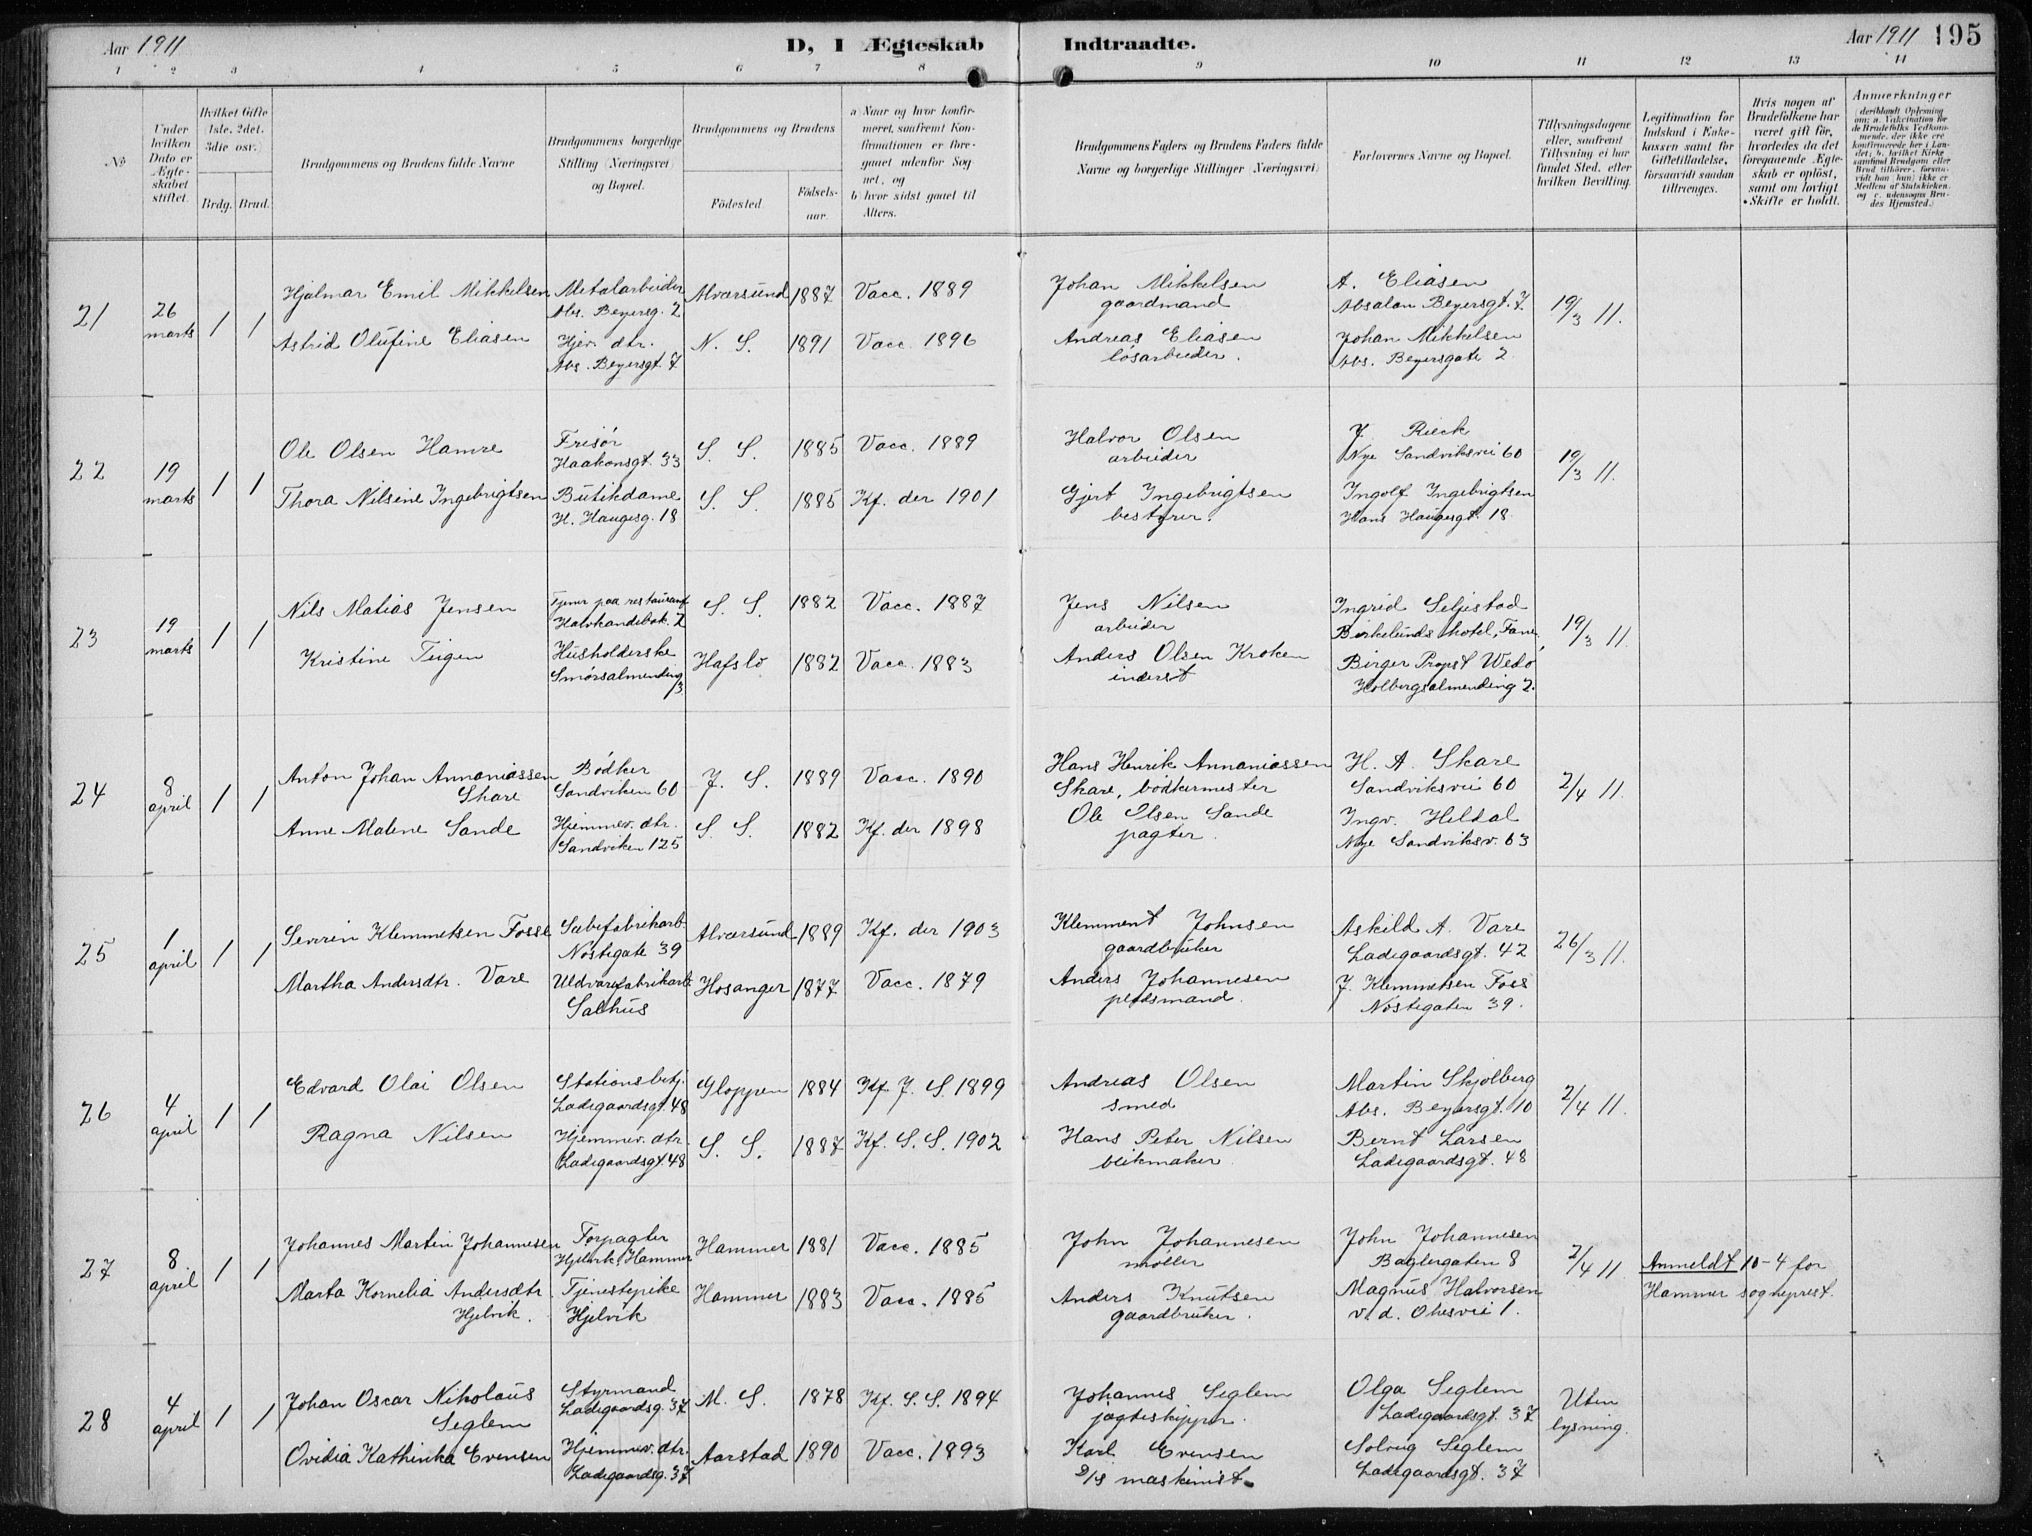 Aar 1911
D, 1 Ægteskab Indtraadte.
Aar 1911 195
1 2 3 4 5 6 7 8 9 10 11 12 13 14
No
Under hvilken Dato er Ægteskabet stiftet.
Hvilket Gifte 1ste. 2det. 3die osv.)
Brdg. Brud.
Brudgommens og Brudens fulde Navne
Brudgommens borgerlige Stilling (Næringsvei) og Bopæl.
Brudgommens og Brudens
Födested.
Födsels-aar.
a) Naar og hvor konfirmeret, saafremt Konfirmationen er foregaaet udenfor Sognet, og
b) hvor sidst gaaet til Alters.
Brudgommens Faders og Brudens Faders fulde Navne og borgerlige Stillinger (Næringsvei)
Forlovernes Navne og Bopæl.
Tillysningsdagene eller, saafremt Tillysning ei har fundet Sted, efter hvilken Bevilling.
Legitimation for Indskud i Enkekassen samt for Giftetilladelse, forsaavidt saadan tiltrænges.
Hvis nogen af Brudefolkene har været gift før, hvorledes da det foregaaende Ægteskab er oplöst, samt om lovligt Skifte er holdt.
Anmærkninger
21
26 marts
1 1
Hjalmar Emil Mikkelsen
Metalarbeider
Abs. Beyersg. 2
Alværsund 1887 Vacc. 1889
Johan Mikkelsen
gaardmand
A. Eliasen
Absalon Beyersgt. 7
19/3 11.
Astrid Olufine Eliasen
Hjev. dtr.
Abs. Beyersgt. 7
N. S. 1891 Vacc. 1896
Andreas Eliasen
løsarbeider.
Johan Mikkelsen
Abs. Beyersgate 2
22
19 marts
1 1
Ole Olsen Hamre
Frisør
Haakonsgt. 33
S. S. 1885 Vacc. 1889
Halvor Olsen
arbeider
Rieck
Nye Sandviksvei 60
19/3 11.
Thora Nilsine Ingebrigtsen
Butikdame
H. Haugesg. 18
S. S. 1885 Kf. der 1901
Gjert Ingebrigtsen
bestyrer.
Ingolf Ingebrigtsen
Hans Haugesgt. 18.
23
19 marts
1 1
Nils Matias Jensen
Tjener paa restaurant
2
S. S. 1882 Vacc. 1887
Jens Nilsen
arbeider
Ingrid Seljestad
Birkelunds hotel, Fane
19/3 11.
Kristine Teigen
Husholderske
Smørsalmending 3
Hafslo 1882 Vacc. 1883
Anders Olsen Kroken
inderst
Birger Propst Wedo
Holbergsalmending 2.
24
8 april
1 1
Anton Johan Annaniassen Skare
Bødker
Sandviken 60
J. S. 1889 Vacc. 1890
Hans Henrik Annaniassen
Skare, bødkermester
H. A. Skare
Sandviksvei 60
2/4 11.
Anne Malene Sande
Hjemmev. dtr.
Sandviken 125
S. S. 1882 Kf. der 1898
Ole Olsen Sande
pagter.
Ingv. Heldal
Nye Sandviksv. 63
25
1 april
1 1
Severin Klemmetsen Fosse
Sæbefabrikarb.
Nøstegate 39
Alværsund 1889 Kf. der 1903
Klemment Johnsen
gaardbruker
Askild A. Vare
Ladegaardsgt. 42
26/3 11.
Martha Andersdtr. Vare
Uldvarefabrikarb.
Salhus
Hosanger 1877 Vacc. 1879
Anders Johannesen
pladsmand.
J. Klemmetsen Foss
Nøstegaten 39.
26
4 april
1 1
Edvard Olai Olsen
Stationsbetj.
Ladegaardsgt. 48
Gloppen 1884 Kf. J. S. 1899
Andreas Olsen
smed
Martin Skjolberg
Abs. Beyersgt. 10
2/4 11.
Ragna Nilsen
Hjemmev. dtr.
Ladegaardsgt. 48
S. S. 1887 Kf. S. S. 1902
Hans Peter Nilsen
blikmaker.
Bernt Larsen
Ladegaardsgt. 48
27
8 april
1 1
Johannes Martin Johannesen
Forpagter
Hjelvik, Hammer
Hammer 1881 Vacc. 1885
John Johannesen
møller
John Johannesen
Baglergaten 8
2/4 11.
Anmeldt 10-4 for
Hammer sogneprest.
Marta Kornelia Andersdtr. Hjelvik.
Tjenestepike
Hjelvik
Hammer 1883 Vacc. 1885
Anders Knutsen
gaardbruker.
Magnus Halvorsen
v. d. Ohesvei 1.
28
4 april
1 1
Johan Oscar Nikolaus Seglem
Styrmand
Ladegaardsg. 37
M. S. 1878 Kf. S. S. 1894
Johannes Seglem
jagteskipper.
Olga Seglem
Ladegaardsgt. 37
Uten lysning.
Ovidia Kathinka Evensen
Hjemmev. dtr.
Ladegaardsg. 37
Aarstad 1890 Vacc. 1893
Karl Evensen
D/S maskinist.
Solveig Seglem
Ladegaardsgt. 37